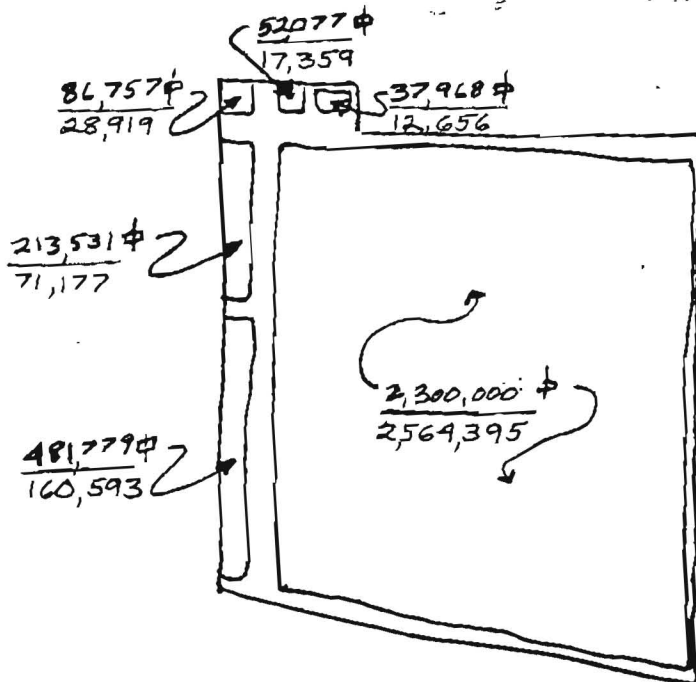 52077 ⏍
17,359
86,757 ⏍
28,919
37,968 ⏍
12,656
213,531 ⏍
71,177
2,300,000 ⏍
2,564,395
481,779 ⏍
160,593